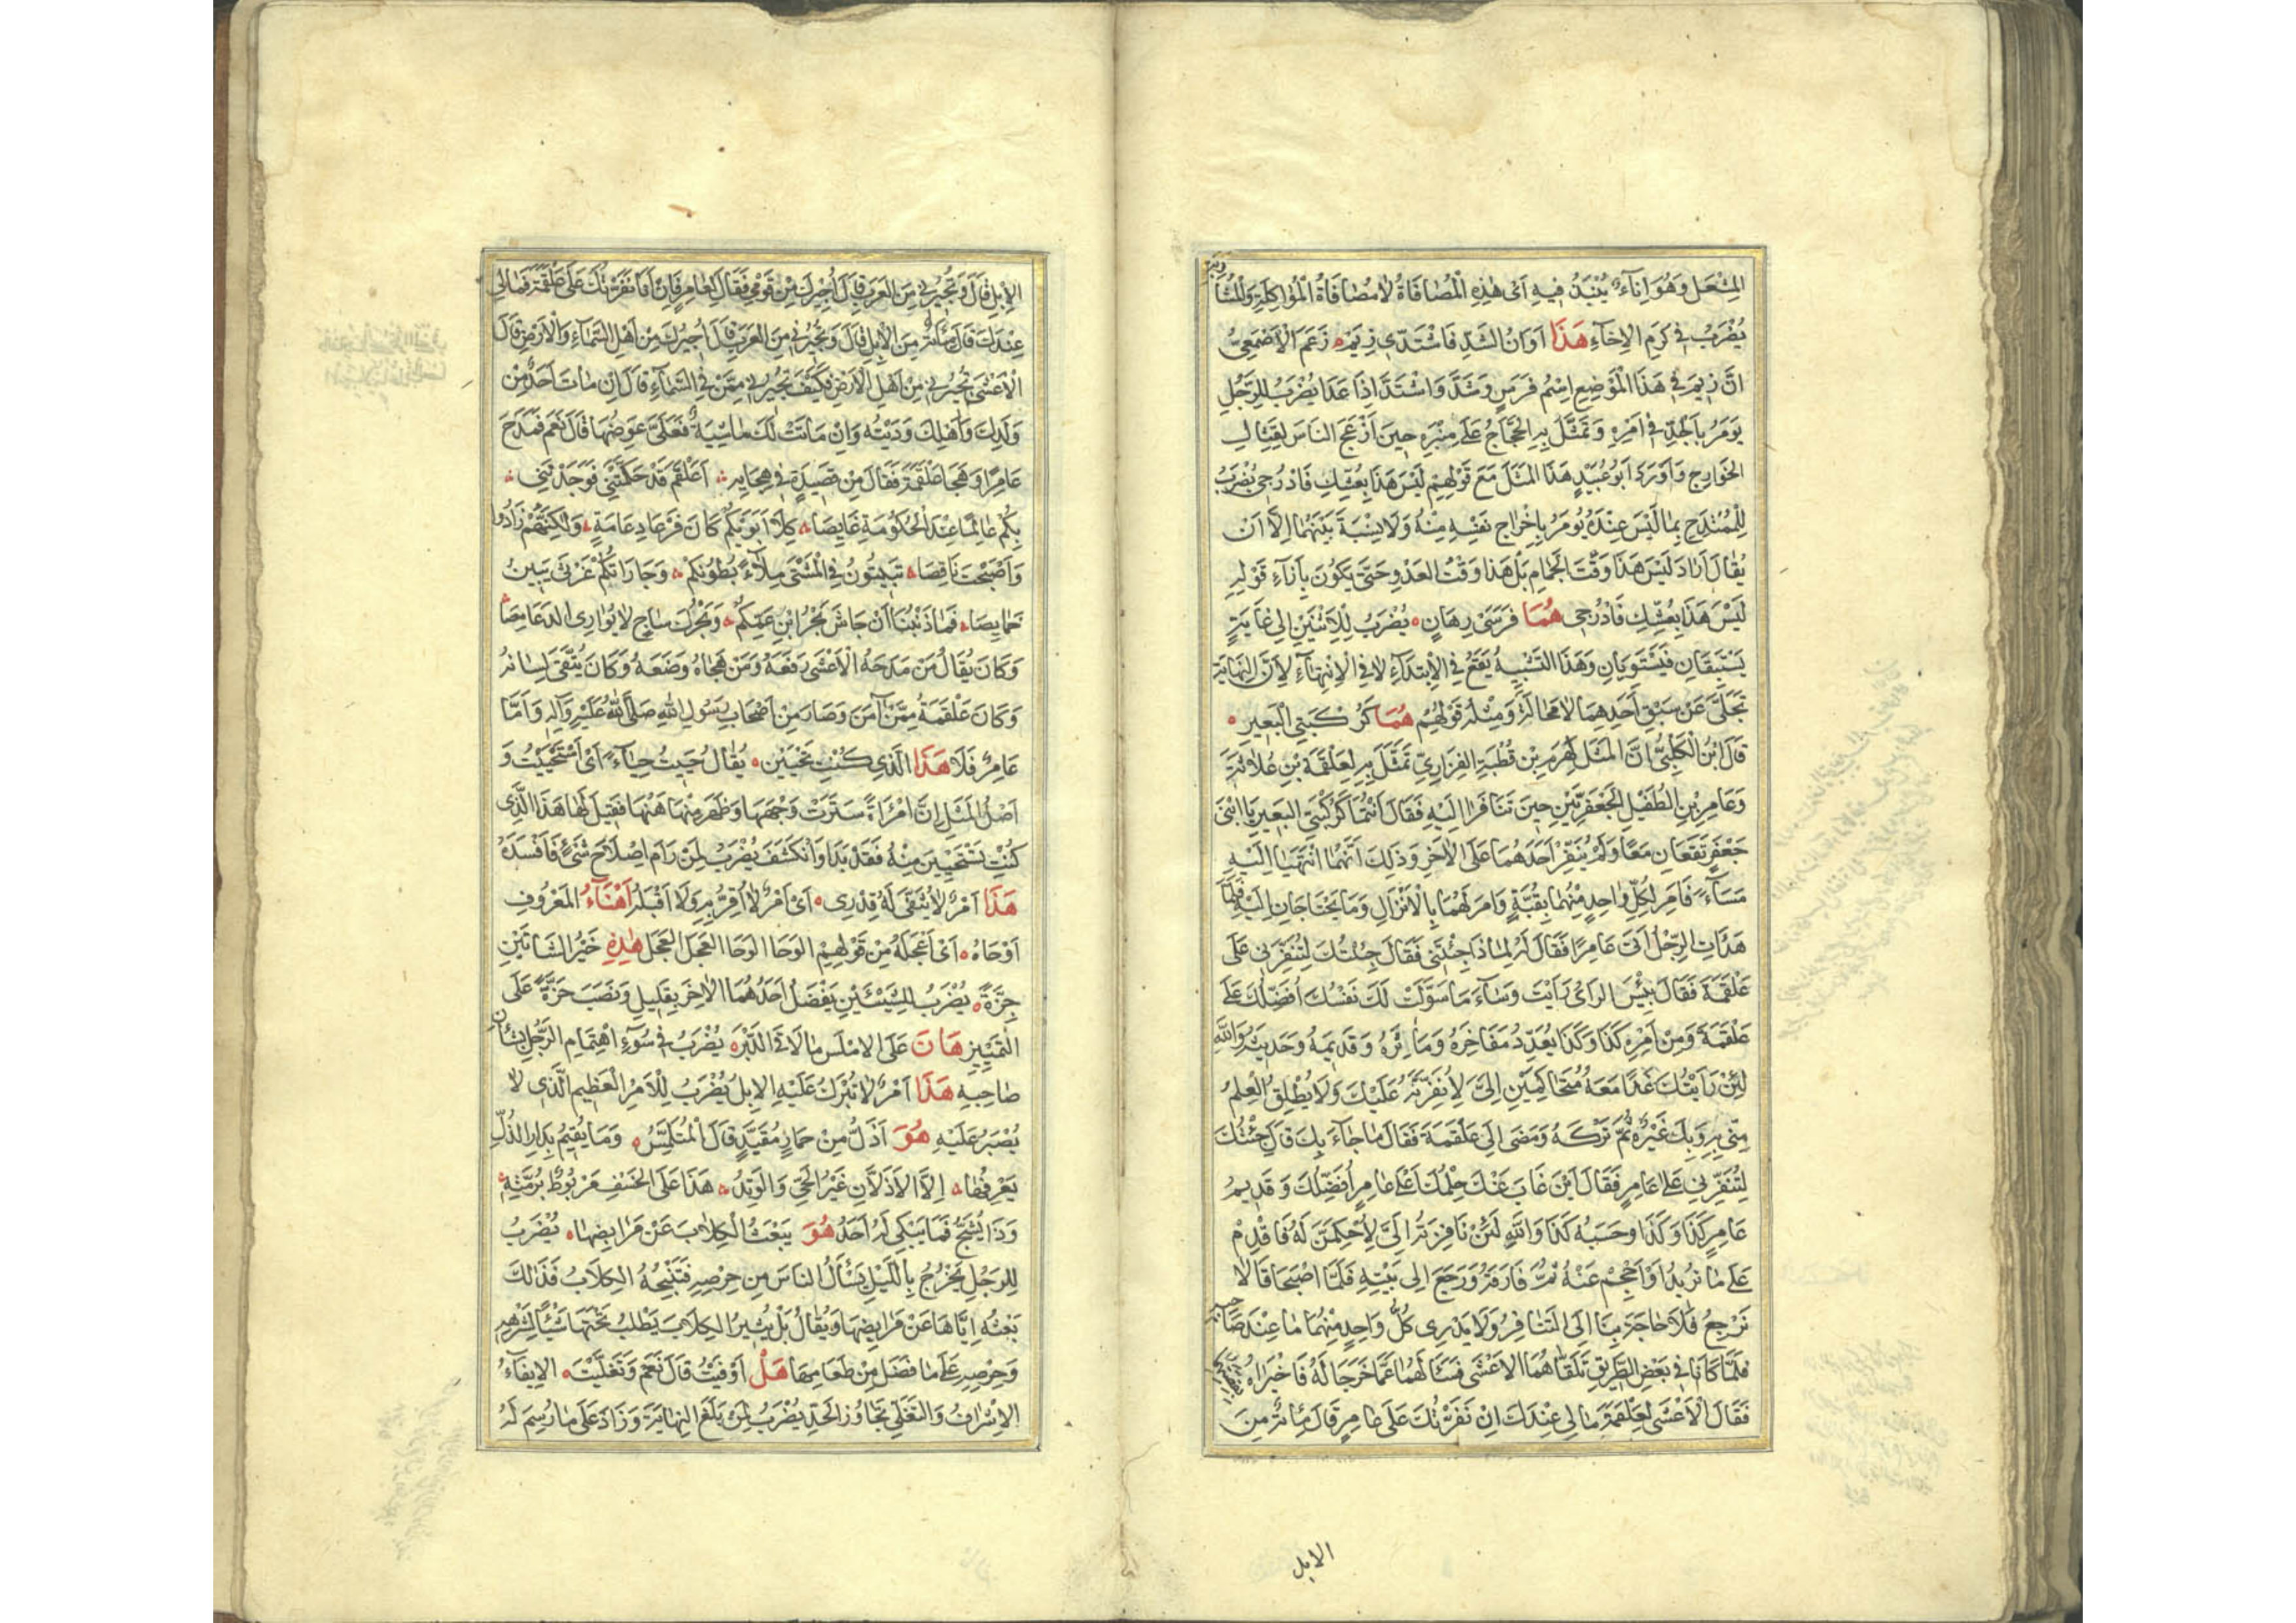 المِشْعَل وَهُوَ اِنَاۤءٌ يُنْبَذُ فِيهِ اَىْ هٰذِهِ الْمُصَافَاةُ لَا مُصَافَاةُ الْمُؤَاكِلَةِ وَالْمُشَا
رَبَةِ
يُضْرَبُ فِى كَرَمِ الْاِخَاۤءِ هَذَا اَوَانُ الشَّدِّ فَاشْتَدِّى زِيَمْ زَعَمَ الْاَصْمَعِىُّ
اَنَّ زِيَمْ فِى هَذَا الْمَوْضِعِ اِسْمُ فَرَسٍ وَشَدَّ وَاشْتَدَّ اِذَا عَدَا يُضْرَبُ لِلرَّجُلِ
يُومَرُ بِالْجِدِّ فِى اَمْرِهِ وَتَمَثَّلَ بِهِ الْحَجَّاجُ عَلَى مِنْبَرِهِ حِينَ اَزْعَجَ النَّاسَ لِقِتَالِ
الخَوَارِجِ وَاَوْرَدَ اَبُو عُبَيْدٍ هَذَا الْمَثَلَ مَعَ قَوْلِهِمْ لَيْسَ هَذَا بِعُشِّكِ فَادْرُجِى يُضْرَبُ
لِلْمُتَمَدِّحِ بِمَا لَيْسَ عِنْدَهُ يُومَرُ بِاِخْرَاجِ نَفْسِهِ مِنْهُ وَلَا نِسْبَةَ بَيْنَهُمَا اِلَّا اَنْ
يُقَالَ اَرَادَ لَيْسَ هَذَا وَقْتَ الجَمَامِ بَلْ هَذَا وَقْتُ العَدْوِ حَتَّى يَكُونَ بِاَزَاۤءِ قَوْلِهِ
لَيْسَ هَذَا بِعُشِّكِ فَادْرُجِى هُمَا فَرَسَىْ رِهَانٍ يُضْرَبُ لِلْاِثْنَيْنِ اِلَى غَايَةٍ
يَسْتَبِقَانِ فَيَسْتَوِيَانِ وَهَذَا التَّشْبِيهُ يَقَعُ فِى الْاِبْتِدَاۤءِ لَا فِى الْاِنْتِهَاۤءِ لِاَنَّ النِّهَايَةَ
تَجَلَّى عَنْ سَبْقِ اَحَدِهِمَا لَا مَحَالَةَ وَمِثْلُهُ قَوْلُهُمْ هُمَا كَرُكْبَتِى الْبَعِيرِ
قَالَ ابْنُ الْكَلْبِىِّ اِنَّ الْمَثَلَ لِهَرِمِ بْنِ قُطْبَةَ الفَزَارِىِّ تَمَثَّلَ بِهِ لِعَلْقَمَةَ بْنِ عُلَاثَةَ
وَعَامِرِ بْنِ الطُّفَيْلِ الجَعْفَرِيَّيْنِ حِينَ تَنَافَرَا اِلَيْهِ فَقَالَ اَنْتُمَا كَرُكْبَتَىِ البَعِيرِ يَا ابْنَىْ
جَعْفَرٍ تَقَعَانِ مَعًا وَلَمْ يُنَفِّرْ اَحَدَهُمَا عَلَى الْاٰخَرِ وَذَلِكَ اَنَّهُمَا انْتَهَيَا اِلَيْهِ
مَسَاۤءً فَاَمَرَ لِكُلِّ وَاحِدٍ مِنْهُمَا بِقُبَّةٍ وَاَمَرَ لَهُمَا بِالْاَنْزَالِ وَمَا يَحْتَاجَانِ اِلَيْهِ فَلَمَّا
هَدَأَتِ الرِّجْلُ اَتَى عَامِرًا فَقَالَ لَهُ لِمَاذَا جِئْتَنِى فَقَالَ جِئْتُكَ لِتُنَفِّرَنِى عَلَى
عَلْقَمَةَ فَقَالَ بِئْسَ الرَّاْىُ رَاَيْتَ وَسَاۤءَ مَا سَوَّلَتْ لَكَ نَفْسُكَ اُفَضِّلُكَ عَلَى
عَلْقَمَةَ وَمِنْ اَمْرِهِ كَذَا وَكَذَا يُعَدِّدُ مَفَاخِرَهُ وَمَاٰثِرَهُ وَقَدِيمَهُ وَحَدِيثَهُ وَاللهِ
لَئِنْ رَاَيْتُكَ غَدًا مَعَهُ مُتَحَاكِمَيْنِ اِلَىَّ لَاُنَفِّرَنَّهُ عَلَيْكَ وَلَا يُطْلِقُ الْعِلْمُ
مِنِّى بِهِ وَبِكَ غَيْرَهُ ثُمَّ تَرَكَهُ وَمَضَى اِلَى عَلْقَمَةَ فَقَالَ مَا جَاۤءَ بِكَ قَالَ جِئْتُكَ
لِتُنَفِّرَنِى عَلَى عَامِرٍ فَقَالَ اَيْنَ غَابَ عَنْكَ حِلْمُكَ اَعَلَى عَامِرٍ اُفَضِّلُكَ وَقَدِيمُ
عَامِرٍ كَذَا وَكَذَا وَحَسَبُهُ كَذَا وَاللهِ لَئِنْ نَافَرْتَهُ اِلَىَّ لَاَحْكُمَنَّ لَهُ فَاقْدِمْ
عَلَى مَا تُرِيدُ اَوْ اَحْجِمْ عَنْهُ ثُمَّ فَارَقَهُ وَرَجَعَ اِلَى بَيْتِهِ فَلَمَّا اَصْبَحَا قَالَا
نَرْجِعُ فَلَا حَاجَةَ بِنَا اِلَى التَّنَافُرِ وَلَا يَدْرِى كُلُّ وَاحِدٍ مِنْهُمَا مَا عِنْدَ صَا
حِبِهِ
فَلَمَّا كَانَا فِى بَعْضِ الطَّرِيقِ تَلَقَّاهُمَا الْاَعْشَى فَسَاَلَهُمَا عَمَّا خَرَجَا لَهُ فَاَخْبَرَاهُ
فَقَالَ الْاَعْشَى لِعَلْقَمَةَ مَا لِى عِنْدَكَ اِنْ نَفَّرْتُكَ عَلَى عَامِرٍ قَالَ مِائَةٌ مِنَ
الابل
الْاِبِلِ قَالَ وَتُجِيرُنِى مِنَ العَرَبِ قَالَ اُجِيرُكَ مِنْ قَوْمِى فَقَالَ لِعَامِرٍ فَاِنْ اَنَا نَفَّرْتُكَ عَلَى عَلْقَمَةَ فَمَا لِى
عِنْدَكَ قَالَ مِائَةٌ مِنَ الْاِبِلِ قَالَ وَتُجِيرُنِى مِنَ العَرَبِ قَالَ اُجِيرُكَ مِنْ اَهْلِ السَّمَاۤءِ وَالْاَرْضِ قَالَ
الْاَعْشَى تُجِيرُنِى مِنْ اَهْلِ الْاَرْضِ فَكَيْفَ تُجِيرُنِى مِمَّنْ فِى السَّمَاۤءِ قَالَ اِنْ مَاتَ اَحَدٌ مِنْ
وَلَدِكَ وَاَهْلِكَ وَدَيْتُهُ وَاِنْ مَاتَتْ لَكَ مَاشِيَةٌ فَعَلَىَّ عِوَضُهَا قَالَ نَعَمْ فَمَدَحَ
عَامِرًا وَهَجَا عَلْقَمَةَ فَقَالَ مِنْ قَصِيدَةٍ فِى هِجَايِهِ اَعَلْقَمُ قَدْ حَكَّمْتَنِى فَوَجَدْتَنِى
بِكُمْ عَالِمًا عِنْدَ الْحُكُومَةِ غَايِصَا كِلَا اَبَوَيْكُمْ كَانَ فَرْعَا دِعَامَةٍ وَلَكِنَّهُمْ زَادُوا
وَاَصْبَحْتَ نَاقِصَا تَبِيتُونَ فِى الْمَشْتَى مِلَاۤءً بُطُونُكُمْ وَجَارَاتُكُمْ غَرْثَى يَبِتْنَ
خَمَايِصَا فَمَا ذَنْبُنَا اَنْ جَاشَ بَحْرُ ابْنِ عَمِّكُمْ وَبَحْرُكَ سَاجٍ لَا يُوَارِى الدَّعَامِصَا
وَكَانَ يُقَالُ مَنْ مَدَحَهُ الْاَعْشَى رَفَعَهُ وَمَنْ هَجَاهُ وَضَعَهُ وَكَانَ يُتَّقَى لِسَانُهُ
وَكَانَ عَلْقَمَةُ مِمَّنْ اٰمَنَ وَصَارَ مِنْ اَصْحَابِ رَسُولِ اللهِ صَلَّى اللهُ عَلَيْهِ وَاٰلِهِ وَاَمَّا
عَامِرٌ فَلَا هَذَا الَّذِى كُنْتِ تَحْيَيْنَ يُقَالُ حَيِيتُ حَيَاۤءً اَىْ اسْتَحْيَيْتُ وَ
اَصْلُ الْمَثَلِ اِنَّ امْرَاَةً سَتَرَتْ وَجْهَهَا وَظَهَرَ مِنْهَا هَنُهَا فَقِيلَ لَهَا هَذَا الَّذِى
كُنْتِ تَسْتَحْيِينَ مِنْهُ فَقَدْ بَدَا وَانْكَشَفَ يُضْرَبُ لِمَنْ رَامَ اِصْلَاحَ شَىْءٍ فَاَفْسَدَهُ
هَذَا اَمْرٌ لَا تُثَفَّى لَهُ قِدْرِى اَىْ اَمْرٌ لَا اُقِرُّ بِهِ وَلَا اَقْبَلُهُ اَهْنَاۤءُ المَعْرُوفِ
اَوْحَاهُ اَىْ اَعْجَلُهُ مِنْ قَوْلِهِمُ الوَحَا الوَحَا العَجَلَ العَجَلَ هٰذِهِ خَيْرُ الشَّاتَيْنِ
جِزَّةً يُضْرَبُ لِلشَّيْئَيْنِ يَفْضُلُ اَحَدُهُمَا الْاٰخَرَ بِقَلِيلٍ وَنَصَبَ جِزَّةً عَلَى
التَّمْيِيزِ هَانَ عَلَى الْاَمْلَسِ مَا لَاقَى الدَّبِرُ يُضْرَبُ فِى سُوۤءِ اهْتِمَامِ الرَّجُلِ بِشَاْنِ
صَاحِبِهِ هَذَا اَمْرٌ لَا تَبْرُكُ عَلَيْهِ الْاِبِلُ يُضْرَبُ لِلْاَمْرِ الْعَظِيمِ الَّذِى لَا
يُصْبَرُ عَلَيْهِ هُوَ اَذَلُّ مِنْ حِمَارٍ مُقَيَّدٍ قَالَ الْمُتَلَمِّسُ وَمَا يُقِيمُ بِدَارِ الذُّلِّ
يَعْرِفُهَا اِلَّا الْاَذَلَّانِ عَيْرُ الْحَىِّ وَالْوَتِدُ هَذَا عَلَى الْخَسْفِ مَرْبُوطٌ بِرُمَّتِهِ
وَذَا يُشَجُّ فَمَا يَبْكِى لَهُ اَحَدُ هُوَ يَبْعَثُ الْكِلَابَ عَنْ مَرَابِضِهَا يُضْرَبُ
لِلرَّجُلِ يَخْرُجُ بِاللَّيْلِ يَسْاَلُ النَّاسَ مِنْ حِرْصِهِ فَتَنْبَحُهُ الْكِلَابُ فَذَلِكَ
بَعْثُهُ اِيَّاهَا عَنْ مَرَابِضِهَا وَيُقَالُ بَلْ يُثِيرُ الْكِلَابَ يَطْلُبُ تَحْتَهَا شَيْئًا لِشَرَهِهِ
وَحِرْصِهِ عَلَى مَا فَضَلَ مِنْ طَعَامِهَا هَلْ اَوْفَيْتُ قَالَ نَعَمْ وَتَغَلَّيْتَ الْاِيفَاۤءُ
الْاِشْرَافُ وَالتَّغَلِّى تَجَاوُزُ الْحَدِّ يُضْرَبُ لِمَنْ بَلَغَ النِّهَايَةَ وَزَادَ عَلَى مَا رُسِمَ لَهُ